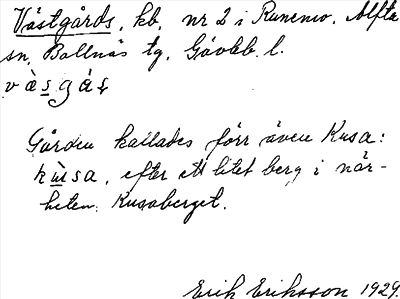 Västgårds, kb. nr 2 i Runemo. Alfta
sn, Bollnäs tg, Gävleb. l.
v ä̀ s g å s
Gården kallades förr även Kusa:
kùsa, efter ett litet berg i när-
heten: Kusaberget.
Erik Eriksson 1929.